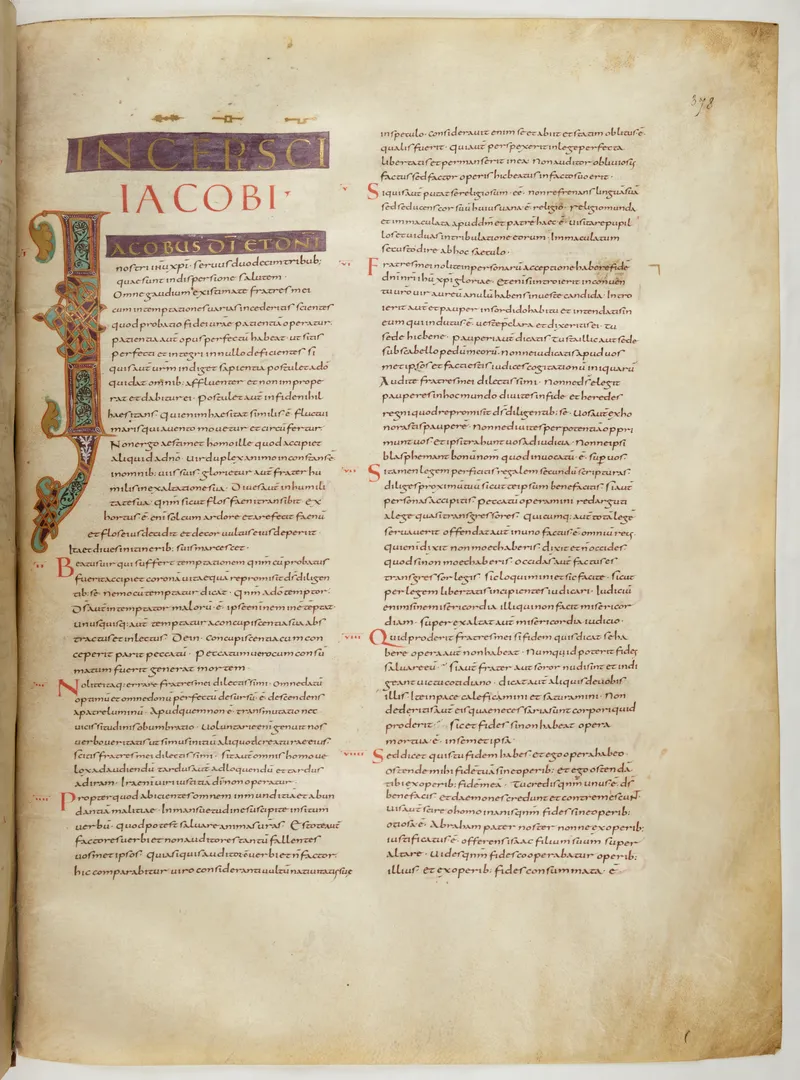 378
INC EP SCI
IACOBI
IACOBUS DI ET DNI
nostri ihu xpi · seruus duodecim tribub;
quae sunt in dispersione salutem ·
Omne gaudium existimate fratres mei
cum in temptationes uarias incideritis scientes
quod probatio fidei urae patientia operatur
patientia aut opus perfectū habeat ut sitis
perfecti et integri in nullo deficientes si
quis aut urm indiget sapientia postulet a dō
qui dat omnib; affluenter et non imprope
rat et dabitur ei · Postulet aut in fide nihil
haesitans quienim haesitat similis ē fluctui
maris qui a uento mouetur et circūfertur
Non ergo aestimet homo ille quod accipiet
aliquid a dnō uir duplex animo inconstans ē
in omnib; uiis suis glorietur aut frater hu
milis in exaltatione sua · Diues aut in humili
tate sua qnm sicut flos faeni transibit ex
hortus ē eni sol cum ardore et arefecit faenū
et flos eius decidit et decor uultus eius deperiit ·
Ita et diues in itinerib; suis marcescet ·
Beatus uir qui suffert temptationem qnm cū probatus
fuerit accipiet coronā uitae quā repromisit ds diligen
tib; se · Nemo cū temptatur dicat · qnm a dō temptor ·
Ds aut intemptator malorū ē · ipse enim neminē temptat
unusquisq; aut temptatur a concupiscentia sua abs
tractus et inlectus · Dein · concupiscentia cum con
ceperit parit peccatū · Peccatum uero cum consū
matum fuerit generat mortem ·
Nolite itaq; errare fratres mei dilectissimi · Omne datū
optimū et omne donū perfectū desursū ē descendens
a patre luminū · Apud quem non ē transmutatio nec
uicissitudinis obumbratio · Uoluntarie eni genuit nos
uerbo ueritatis ut simus initiū aliquod creaturae eius
scitis fratres mei dilectissimi · sit aut omnis homo ue
lox ad audiendū tardus aut ad loquendū et tardus
ad iram · Ira eni uiri iustitiā dī non operatur ·
Propter quod abicientes omnem inmunditiā et abun
dantiā malitiae · In mansuetudine suscipite insitum
uerbū · quod potest saluare animas uras · Estote aut
factores uerbi et non auditores tantū fallentes
uosmet ipsos · quia si quis auditor ē uerbi et n factor
hic comparabitur uiro consideranti uultū natiuitatis sue
in speculo · Considerauit enim se et abiit et statim oblitus ē ·
qualis fuerit · qui aut perspexerit in lege perfecta
libertatis et permanserit in ea · Non auditor obliuiosus
factus sed factor operis hic beatus in facto suo erit ·
Si quis aut putat se religiosum eē · non refrenans linguā suā
sed seducens cor suū huius uana ē religio · religio munda
et immaculata apud dm et patrē haec ē · Uisitare pupil
los et uiduas in tribulatione eorum · Immaculatum
se custodire ab hoc saeculo ·
Fratres mei nolite in personarū acceptione habere fidē
dni nri ihū xpi gloriae · Etenī si introierit in conuen
tu uro uir aureū anulū habens in ueste candida · Intro
ierit aut et pauper in sordido habitu et intendatis in
eum qui indutus ē · ueste p̄clara et dixeritis ei · Tu
sede hic bene · pauperi aut dicatis tu sta illic aut sede
sub scabello pedū meorū · Nonne iudicatis apud uos
met ipsos et facti estis iudices cogitationū iniquarū
Audite fratres mei dilectissimi · Nonne ds elegit
pauperes in hoc mundo diuites in fide · et heredes
regni quod repromisit ds diligentib; se · Uos aut exho
norastis pauperē · Nonne diuites per potentiā oppri
munt uos et ipsi trahunt uos ad iudicia · Nonne ipsi
blasphemant bonū nom quod inuocatū ē sup uos ·
Si tamen legem perficitis regalem secundū scripturas ·
diliges proximū tuū sicut te ipsum bene facitis si aut
personas accipitis peccatū operamini redarguti
a lege quasi transgressores · quicumq; aut totā legē
seruauerit offendat aut in uno factus ē omniū reus
qui eni dixit non moechaberis dixit et n occides
quod si non moechaberis occidas aut factus es
transgressor legis sic loquimini et sic facite · sicut
per legem libertatis incipientes iudicari · Iudiciū
enim sine misericordia illi qui non facit misericor
diam · superexaltat aut misericordia iudicio ·
Quid proderit fratres mei si fidem quis dicat se ha
bere opera aut non habeat · Numquid poterit fides
saluare eū · si aut frater aut soror nudi sunt et indi
geant uictu cotidiano · dicat aut aliquis de uobis
illis · Ite in pace calefacimini et saturamini · Non
dederitis aut eis quae necessaria sunt corpori quid
proderit · sic et fides si non habeat opera
mortua ē · in semet ipsa ·
Sed dicet quis tu fidem habes et ego opera habeo
ostende mihi fidē tuā sine operib; et ego ostendā
tibi ex operib; fidē meā · Tu credis qnm unus ē ds
bene facis et daemones credunt et contremescunt
Uis aut scire o homo inanis qnm fides sine operib;
otiosa ē · Abraham pater noster nonne ex operib;
iustificatus ē · offerens isaac filium suum super
altare · Uides qnm fides cooperabatur operib;
illius · Et ex operib; fides consummata · ē